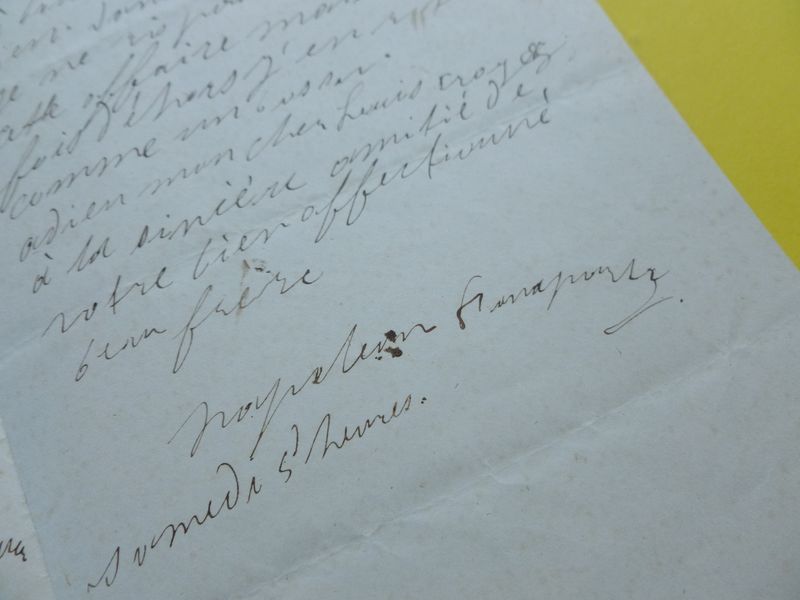 je ne
cette affaire mais
fois dehors j'en
comme un
adieu mon cher Louis croyez
à la sincère amitié de
votre bien affectionné
beau frère
Napoléon Bonaparte
samedi 5 heures.